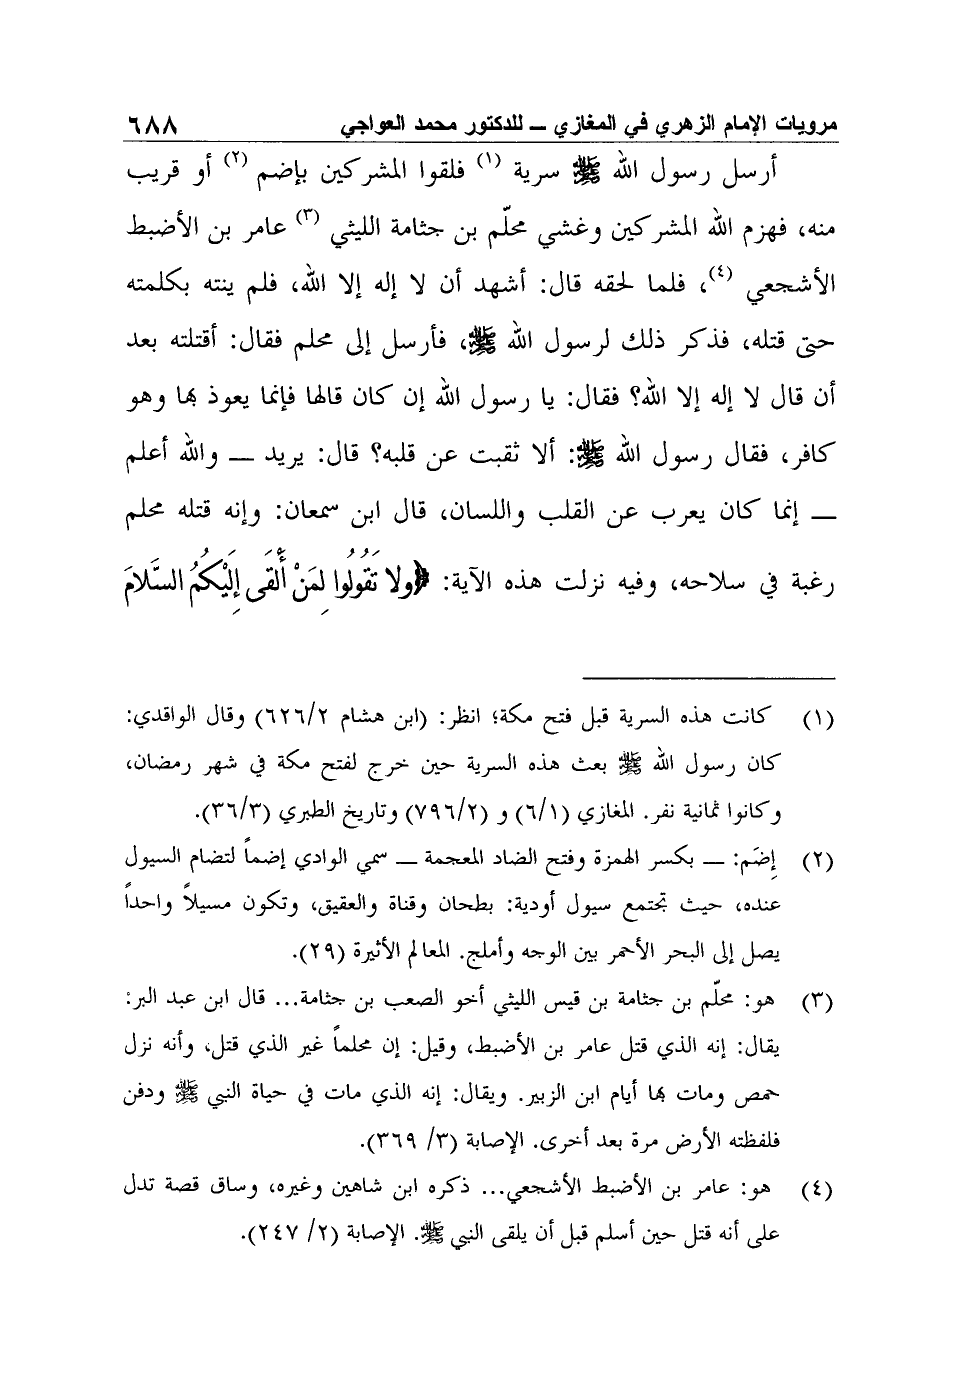 مرويات الإمام الزهري في المغازي ــ للدكتور محمد العواجي ٦٨٨
أرسل رسول الله ﷺ سرية (١) فلقوا المشركين بإضم (٢) أو قريب
منه، فهزم الله المشركين وغشي محلّم بن جثامة الليثي (٣) عامر بن الأضبط
الأشجعي (٤)، فلما لحقه قال: أشهد أن لا إله إلا الله، فلم ينته بكلمته
حتى قتله، فذكر ذلك لرسول الله ﷺ، فأرسل إلى محلم فقال: أقتلته بعد
أن قال لا إله إلا الله؟ فقال: يا رسول الله إن كان قالها فإنما يعوذ بها وهو
كافر، فقال رسول الله ﷺ: ألا ثقبت عن قلبه؟ قال: يريد ــ والله أعلم
ــ إنما كان يعرب عن القلب واللسان، قال ابن سمعان: وإنه قتله محلم
رغبة في سلاحه، وفيه نزلت هذه الآية: ﴿وَلا تَقُولُوا لِمَنْ أَلْقَى إِلَيْكُمُ السَّلامَ
(١) كانت هذه السرية قبل فتح مكة؛ انظر: (ابن هشام ٦٢٦/٢) وقال الواقدي:
كان رسول الله ﷺ بعث هذه السرية حين خرج لفتح مكة في شهر رمضان،
وكانوا ثمانية نفر. المغازي (٦/١) و (٧٩٦/٢) وتاريخ الطبري (٣٦/٣).
(٢) إِضَم: ــ بكسر الهمزة وفتح الضاد المعجمة ــ سمي الوادي إضماً لتضام السيول
عنده، حيث تجتمع سيول أودية: بطحان وقناة والعقيق، وتكون مسيلاً واحداً
يصل إلى البحر الأحمر بين الوجه وأملج. المعالم الأثيرة (٢٩).
(٣) هو: محلّم بن جثامة بن قيس الليثي أخو الصعب بن جثامة... قال ابن عبد البر:
يقال: إنه الذي قتل عامر بن الأضبط، وقيل: إن محلماً غير الذي قتل، وأنه نزل
حمص ومات بها أيام ابن الزبير. ويقال: إنه الذي مات في حياة النبي ﷺ ودفن
فلفظته الأرض مرة بعد أخرى. الإصابة (٣/ ٣٦٩).
(٤) هو: عامر بن الأضبط الأشجعي... ذكره ابن شاهين وغيره، وساق قصة تدل
على أنه قتل حين أسلم قبل أن يلقى النبي ﷺ. الإصابة (٢/ ٢٤٧).